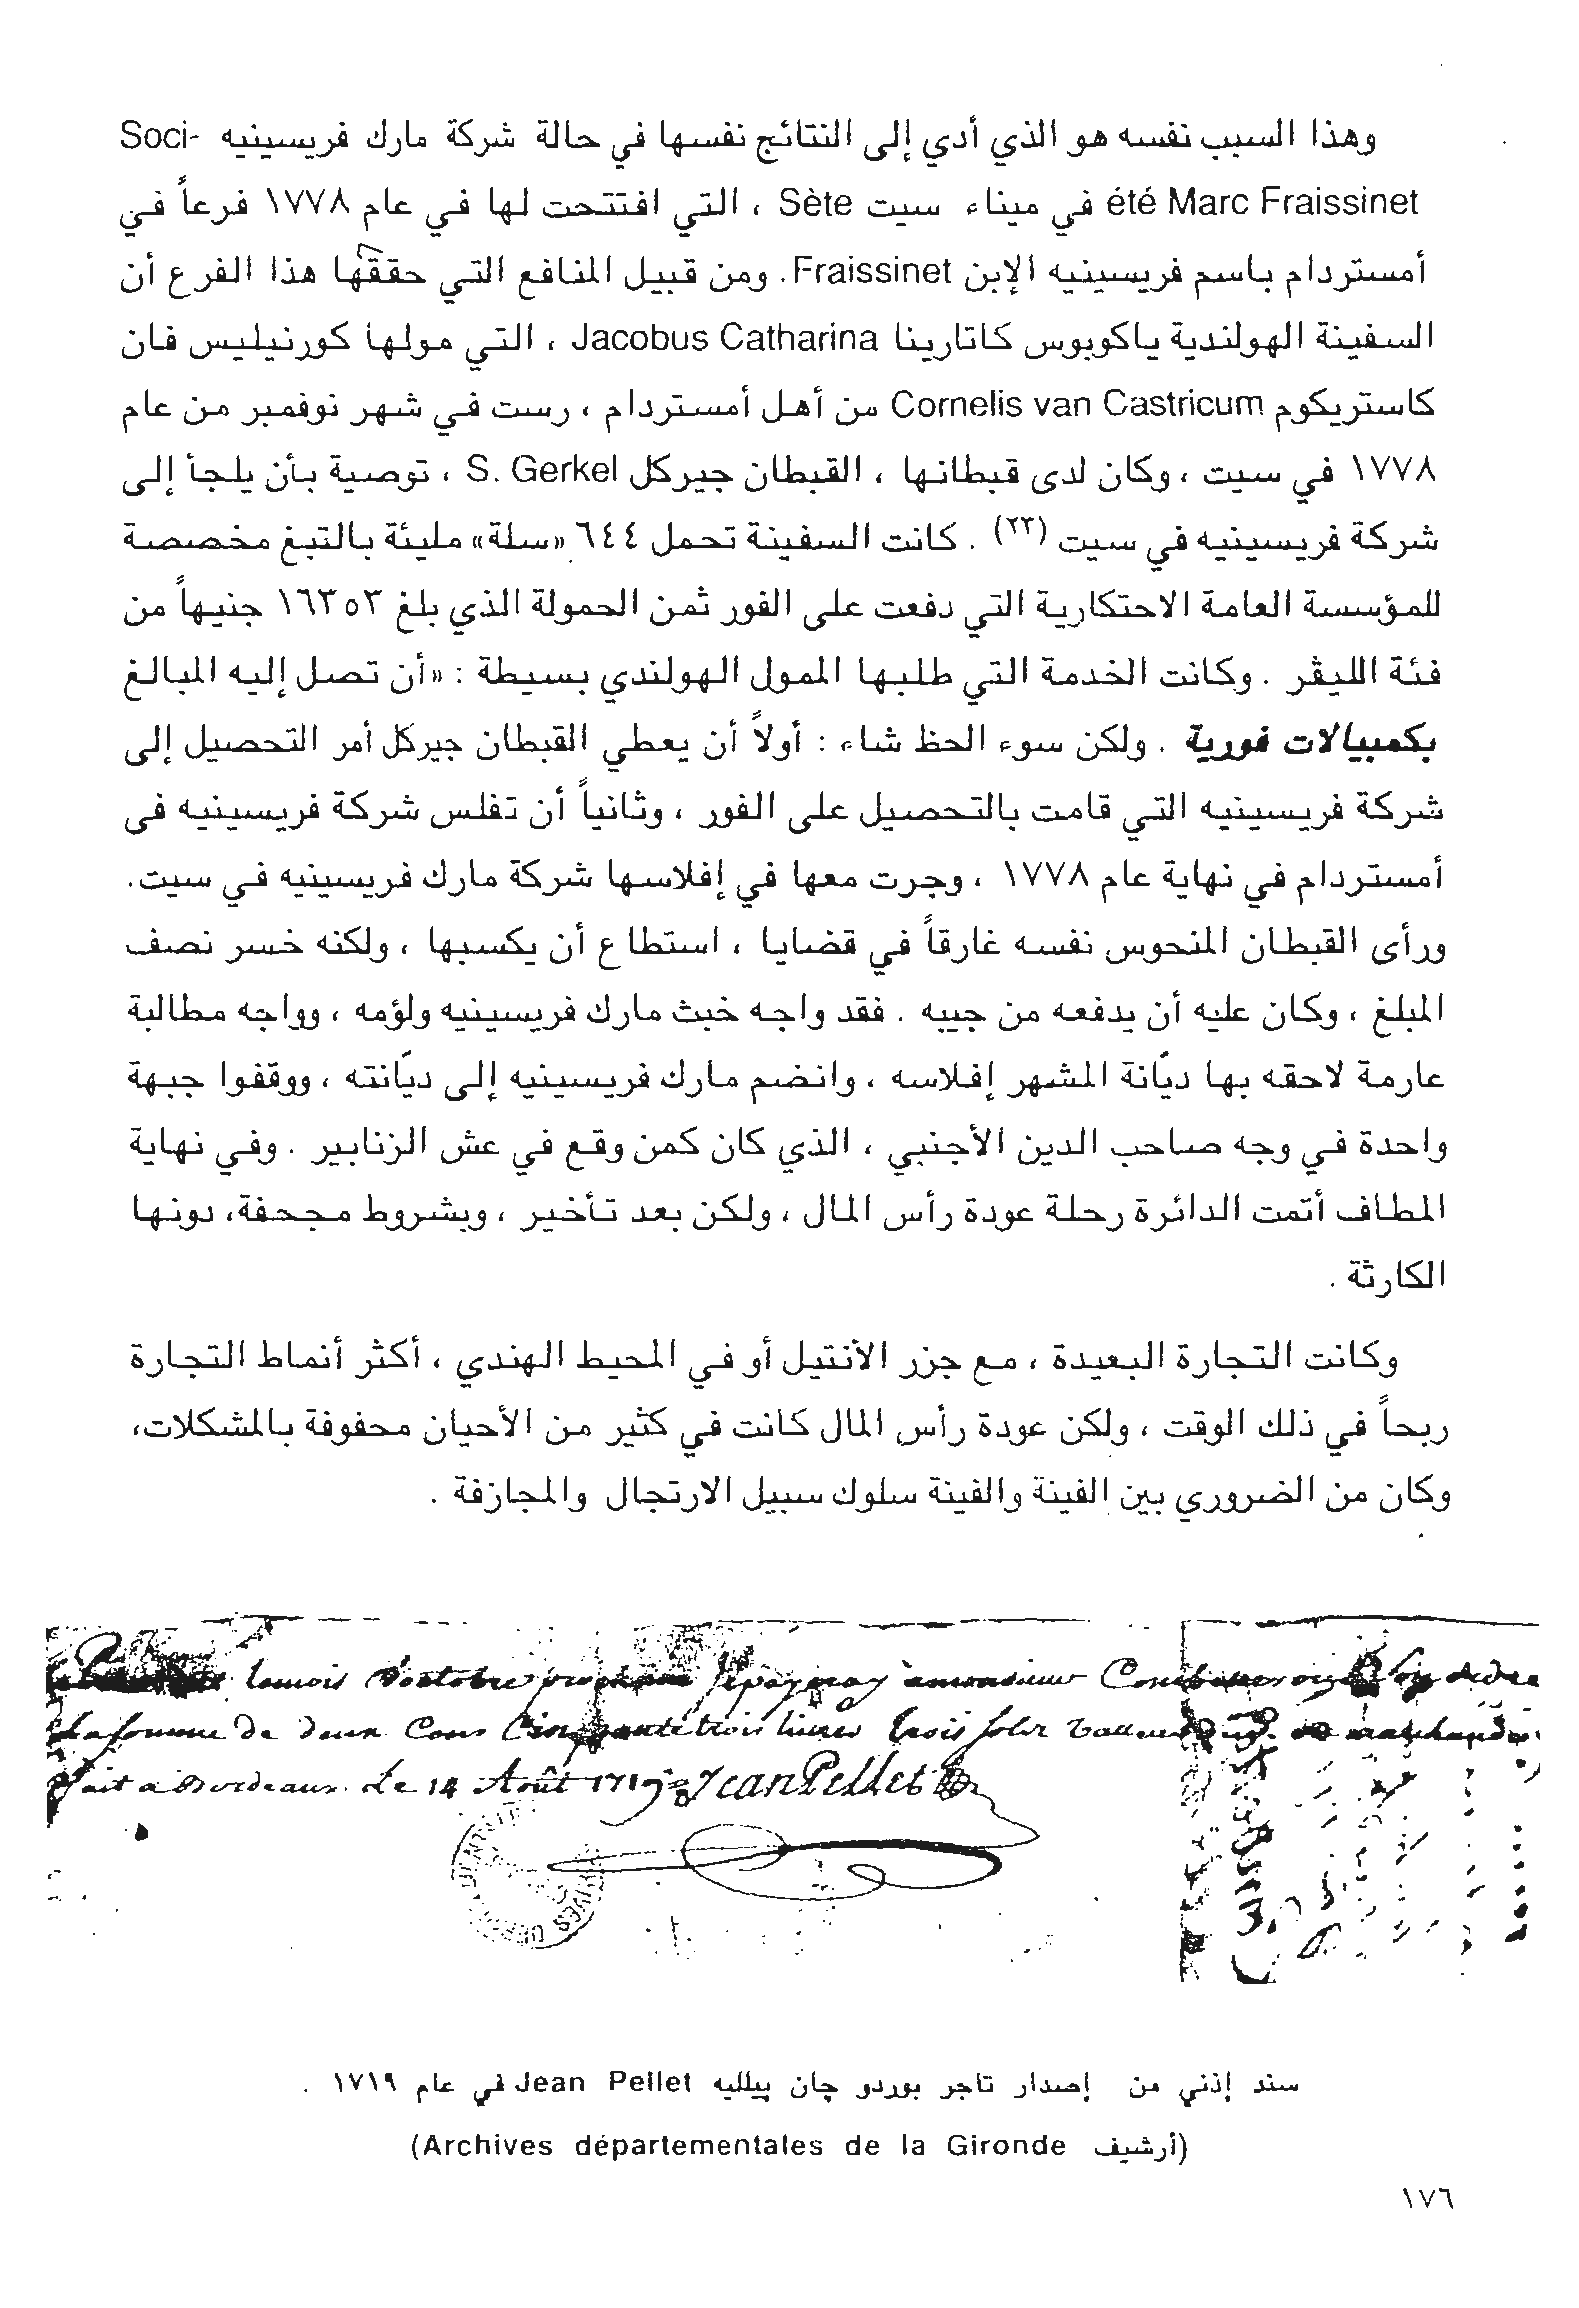 وهذا السبب نفسه هو الذي أدي إلى النتائج نفسها في حالة شركة مارك فريسينيه Soci-
été Marc Fraissinet في ميناء سيت Sète ، التي افتتحت لها في عام ١٧٧٨ فرعاً في
أمستردام باسم فريسينيه الإبن Fraissinet. ومن قبيل المنافع التي حققها هذا الفرع أن
السفينة الهولندية ياكوبوس كاتارينا Jacobus Catharina ، التي مولها كورنيليس فان
كاستريكوم Cornelis van Castricum من أهل أمستردام ، رست في شهر نوفمبر من عام
١٧٧٨ في سيت ، وكان لدى قبطانها ، القبطان جيركل S. Gerkel ، توصية بأن يلجأ إلى
شركة فريسينيه في سيت (٢٣) . كانت السفينة تحمل ٦٤٤ «سلة» مليئة بالتبغ مخصصة
للمؤسسة العامة الاحتكارية التي دفعت على الفور ثمن الحمولة الذي بلغ ١٦٣٥٣ جنيهاً من
فئة الليڤر . وكانت الخدمة التي طلبها الممول الهولندي بسيطة : «أن تصل إليه المبالغ
بكمبيالات فورية . ولكن سوء الحظ شاء : أولاً أن يعطي القبطان جيركل أمر التحصيل إلى
شركة فريسينيه التي قامت بالتحصيل على الفور ، وثانياً أن تفلس شركة فريسينيه في
أمستردام في نهاية عام ١٧٧٨ ، وجرت معها في إفلاسها شركة مارك فريسينيه في سيت.
ورأى القبطان المنحوس نفسه غارقاً في قضايا ، استطاع أن يكسبها ، ولكنه خسر نصف
المبلغ ، وكان عليه أن يدفعه من جيبه . فقد واجه خبث مارك فريسينيه ولؤمه ، وواجه مطالبة
عارمة لاحقه بها ديّانة المشهر إفلاسه ، وانضم مارك فريسينيه إلى ديّانته ، ووقفوا جبهة
واحدة في وجه صاحب الدين الأجنبي ، الذي كان كمن وقع في عش الزنابير . وفي نهاية
المطاف أتمت الدائرة رحلة عودة رأس المال ، ولكن بعد تأخير ، وبشروط مجحفة، دونها
الكارثة .
وكانت التجارة البعيدة ، مع جزر الأنتيل أو في المحيط الهندي ، أكثر أنماط التجارة
ربحاً في ذلك الوقت ، ولكن عودة رأس المال كانت في كثير من الأحيان محفوفة بالمشكلات،
وكان من الضروري بين الفينة والفينة سلوك سبيل الارتجال والمجازفة .
lemois d'octobre prochain Jepayeray amonsieur
Lasomme de deux Cens Cinquantetrois livres trois solz
fait a Bordeaux Le 14 Août 1719 Jean Pellet
سند إذني من إصدار تاجر بوردو چان پيلليه Jean Pellet في عام ١٧١٩ .
(أرشيف Archives départementales de la Gironde)
١٧٦